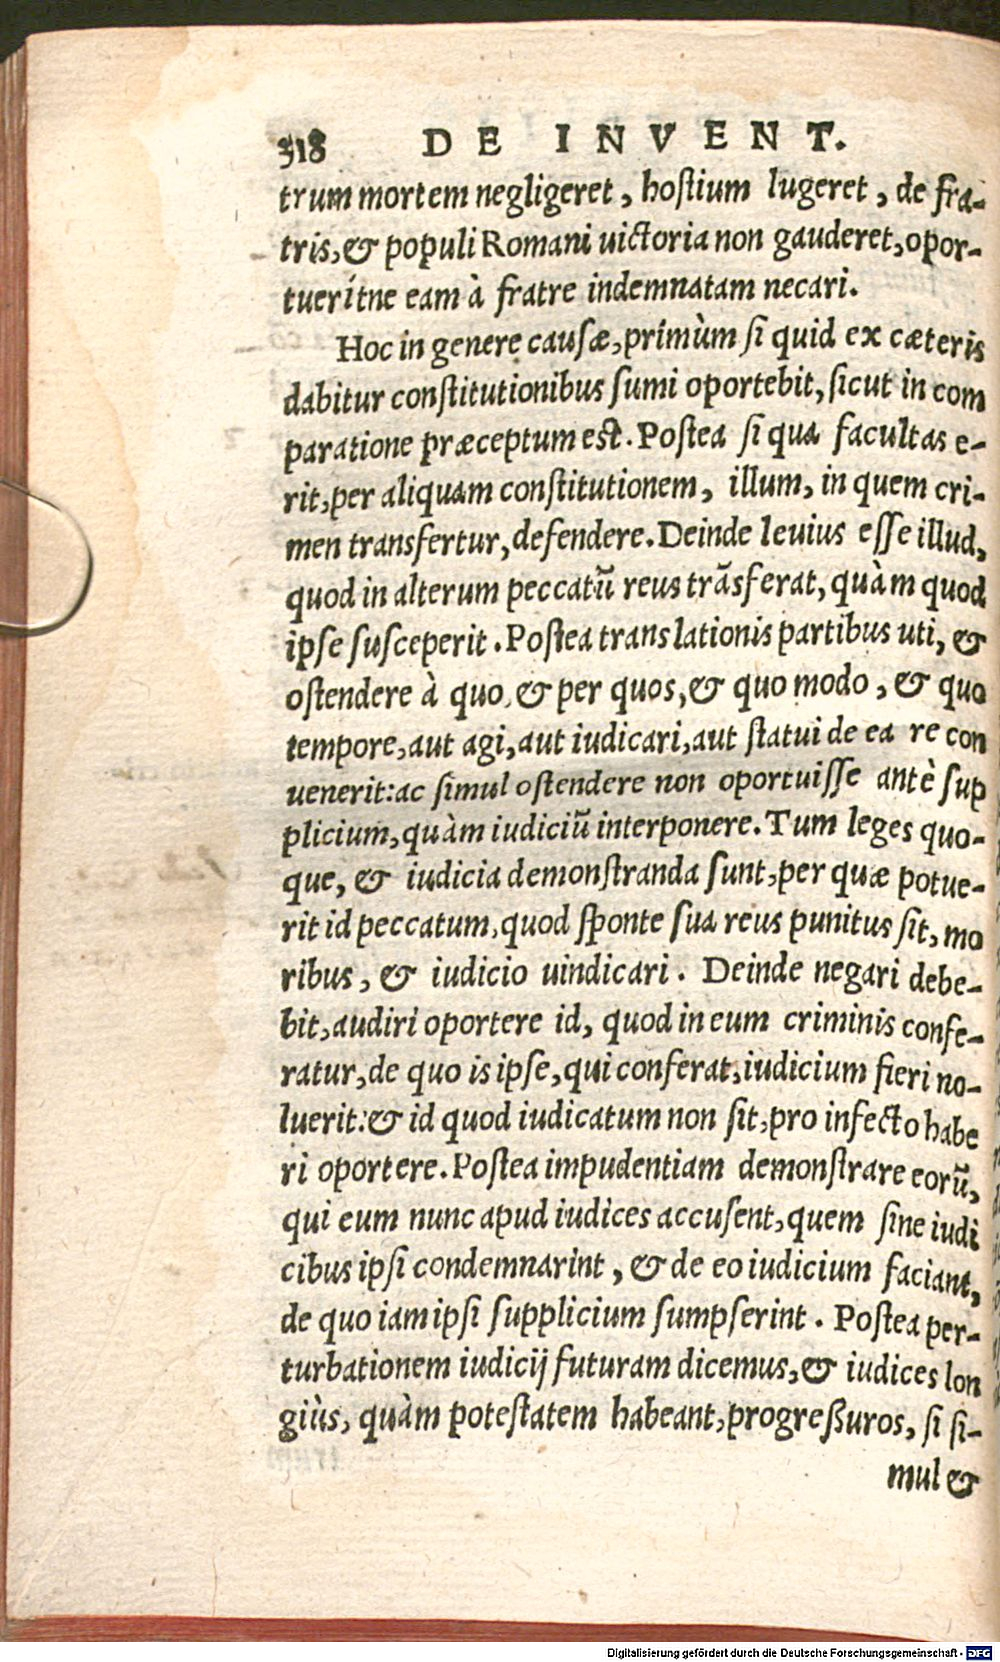 318 DE INVENT.
trum mortem negligeret, hostium lugeret, de fra-
tris, & populi Romani uictoria non gauderet, opor-
tuerítne eam à fratre indemnatam necari.
Hoc in genere causæ, primùm si quid ex cæteris
dabitur constitutionibus sumi oportebit, sicut in com
paratione præceptum est. Postea si qua facultas e-
rit, per aliquam constitutionem, illum, in quem cri-
men transfertur, defendere. Deinde leuius esse illud,
quod in alterum peccatū reus trāsferat, quàm quod
ipse susceperit. Postea translationis partibus uti, &
ostendere à quo, & per quos, & quo modo, & quo
tempore, aut agi, aut iudicari, aut statui de ea re con
uenerit: ac simul ostendere non oportuisse antè sup
plicium, quàm iudiciū interponere. Tum leges quo-
que, & iudicia demonstranda sunt, per quæ potue-
rit id peccatum, quod sponte sua reus punitus sit, mo
ribus, & iudicio uindicari. Deinde negari debe-
bit, audiri oportere id, quod in eum criminis confe-
ratur, de quo is ipse, qui conferat, iudicium fieri no-
luerit: & id quod iudicatum non sit, pro infecto habe
ri oportere. Postea impudentiam demonstrare eorū,
qui eum nunc apud iudices accusent, quem sine iudi
cibus ipsi condemnarint, & de eo iudicium faciant,
de quo iam ipsi supplicium sumpserint. Postea per-
turbationem iudicij futuram dicemus, & iudices lon
giùs, quàm potestatem habeant, progreßuros, si si-
mul &
Digitalisierung gefördert durch die Deutsche Forschungsgemeinschaft - DFG